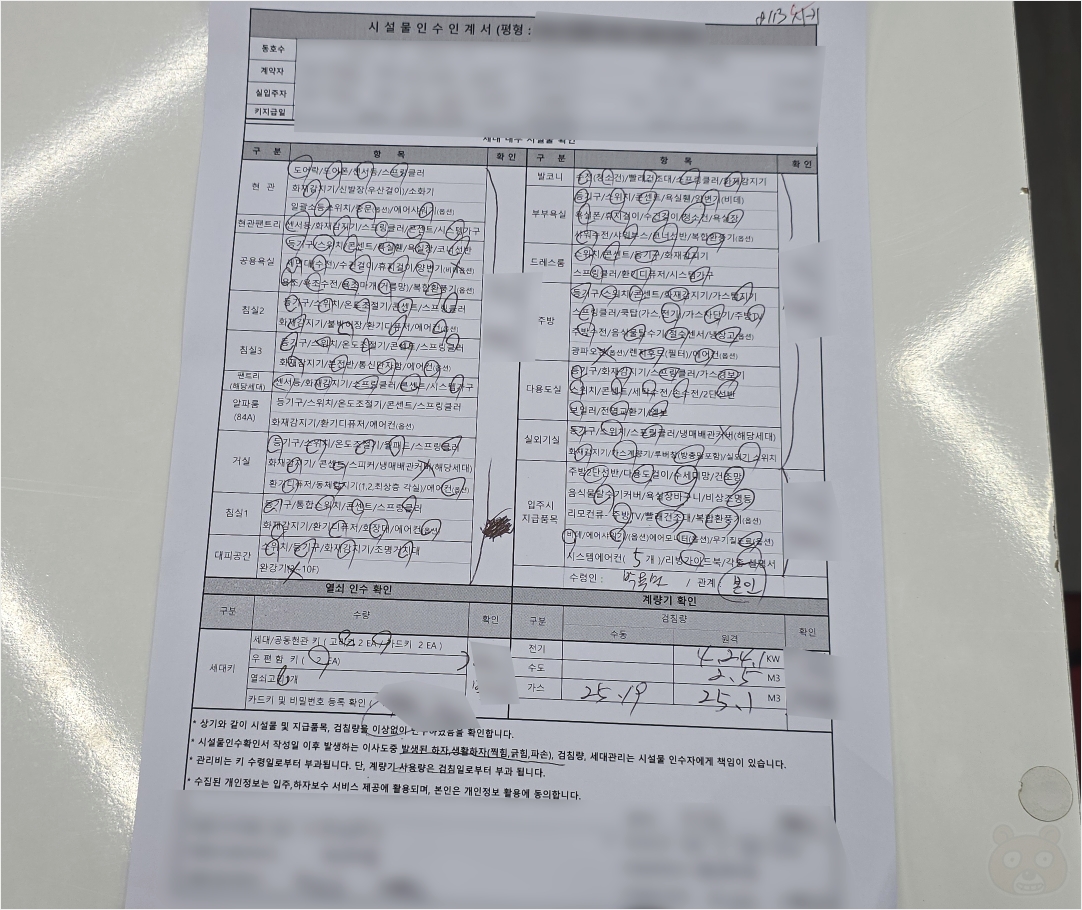 시설물인수인계서(평형 :
동호수
계약자
실입주자
키지급일
세대 내부 시설물 확인
구 분 항 목 확 인
현 관
도어락/도어폰/센서등/스프링클러
화재감지기/신발장(우산걸이)/소화기
일괄소등스위치/중문(옵션)/에어샤워기(옵션)
현관팬트리 센서등/화재감지기/스프링클러/콘센트/시스템가구
공용욕실
등기구/스위치/콘센트/욕실휀/욕실장/코너선반
세면대(수전)/수건걸이/휴지걸이/양변기(비데옵션)
욕조/욕조수전/욕조마개(거름망)/복합환풍기(옵션)
침실2
등기구/스위치/온도조절기/콘센트/스프링클러
화재감지기/붙박이장/환기디퓨저/에어컨(옵션)
침실3
등기구/스위치/온도조절기/콘센트/스프링클러
화재감지기/분전반/통신단자함/에어컨(옵션)
팬트리
(해당세대)
센서등/화재감지기/스프링클러/콘센트/시스템가구
알파룸
(84A)
등기구/스위치/온도조절기/콘센트/스프링클러
화재감지기/환기디퓨저/에어컨(옵션)
거실
등기구/스위치/온도조절기/월패드/스프링클러
화재감지기/콘센트/스피커/냉매배관커버(해당세대)
환기디퓨저/동체감지기(1,2,최상층 각실)/에어컨(옵션)
침실1
등기구/통합스위치/콘센트/스프링클러
화재감지기/환기디퓨저/화장대/에어컨(옵션)
대피공간
스위치/등기구/화재감지기/조명거치대
완강기(3~10F)
구 분 항 목 확 인
발코니 수전(청소건)/빨래건조대/스프링클러/화재감지기
부부욕실
등기구/스위치/콘센트/욕실휀/양변기(비데)
욕실폰/휴지걸이/수건걸이/청소건/욕실장
샤워수전/샤워부스/코너선반/복합환풍기(옵션)
드레스룸
스위치/콘센트/등기구/화재감지기
스프링클러/환기디퓨저/시스템가구
주방
등기구/스위치/콘센트/화재감지기/가스탐지기
스프링클러/쿡탑(가스,전기)/가스차단기/주방TV
주방수전/음식물탈수기/절수센서/냉장고(옵션)
광파오븐(옵션)/렌지후드(필터)/에어컨(옵션)
다용도실
등기구/화재감지기/스프링클러/가스경보기
스위치/콘센트/세탁수전/손수전/2단선반
보일러/전열교환기/경보
실외기실
등기구/스위치/스프링클러/냉매배관커버(해당세대)
화재감지기/가스계량기/루버창(방충망포함)/실외기 스위치
입주시
지급품목
주방2단선반/다용도걸이/수세미망/건조망
음식물탈수기커버/욕실장바구니/비상조명등
리모컨류-주방TV/빨래건조대/복합환풍기(옵션)
비데/에어샤워기/(옵션)에어모니터(옵션)/
시스템에어컨( 5 개 )/리빙가이드북/각종 설명서
수령인 : / 관계 : 본인
열쇠 인수 확인
구분 수량 확인
세대키
세대/공동현관 키 ( 고리키 2 EA / 카드키 2 EA )
우 편 함 키 ( 2 EA)
열쇠고리 개
카드키 및 비밀번호 등록 확인 (
계량기 확인
구분 검침량 확인
수동 원격
전기 4,24.1 KW
수도 2.5 M3
가스 25.19 25.1 M3
* 상기와 같이 시설물 및 지급품목, 검침량을 이상없이 인수하였음을 확인합니다.
* 시설물인수확인서 작성일 이후 발생하는 이사도중 발생된 하자,생활하자(찍힘,긁힘,파손), 검침량, 세대관리는 시설물 인수자에게 책임이 있습니다.
* 관리비는 키 수령일로부터 부과됩니다. 단, 계량기 사용량은 검침일로부터 부과 됩니다.
* 수집된 개인정보는 입주,하자보수 서비스 제공에 활용되며, 본인은 개인정보 활용에 동의합니다.